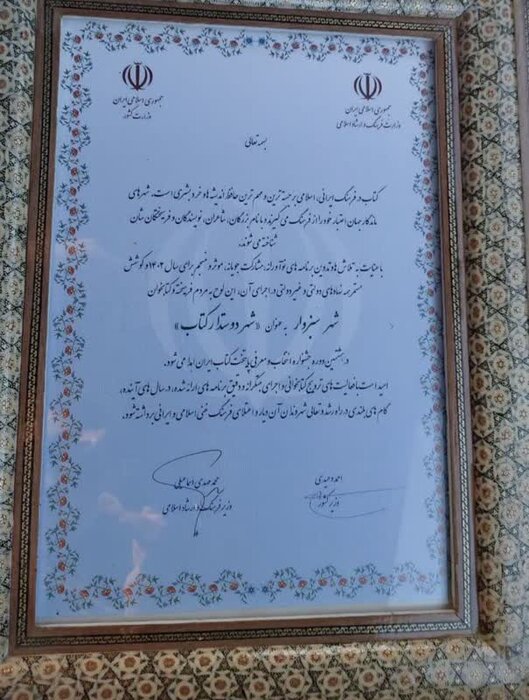 جمهوری اسلامی ایران
وزارت فرهنگ و ارشاد اسلامی
جمهوری اسلامی ایران
وزارت کشور
بسمه تعالی
کتاب در فرهنگ ایرانی، اسلامی برجسته ترین و مهم ترین حافظ اندیشه ها و خرد بشری است. شهرهای
ماندگار جهان، اعتبار خود را از فرهنگ می گیرند و با نام بزرگان، شاعران، نویسندگان و فرهیختگان شان
شناخته می شوند.
با عنایت به تلاش ها و تدوین برنامه های نوآورانه، مشارکت جویانه، موثر و منسجم برای سال ۱۴۰۲ و کوشش
مستمر همه نهادهای دولتی و غیردولتی در اجرای آن، این لوح به مردم فرهیخته و کتابخوان
شهر سبزوار به عنوان «شهر دوستدار کتاب»
در هشتمین دوره جشنواره انتخاب و معرفی پایتخت کتاب ایران اهدا می شود.
امید است با فعالیت های ترویج کتابخوانی و اجرای مبتکرانه و دقیق برنامه های ارائه شده، در سال های آینده،
گام های بلندی در راه رشد و تعالی شهروندان آن دیار و اعتلای فرهنگ غنی اسلامی و ایرانی برداشته شود.
احمد وحیدی
وزیر کشور
محمد مهدی اسماعیلی
وزیر فرهنگ و ارشاد اسلامی